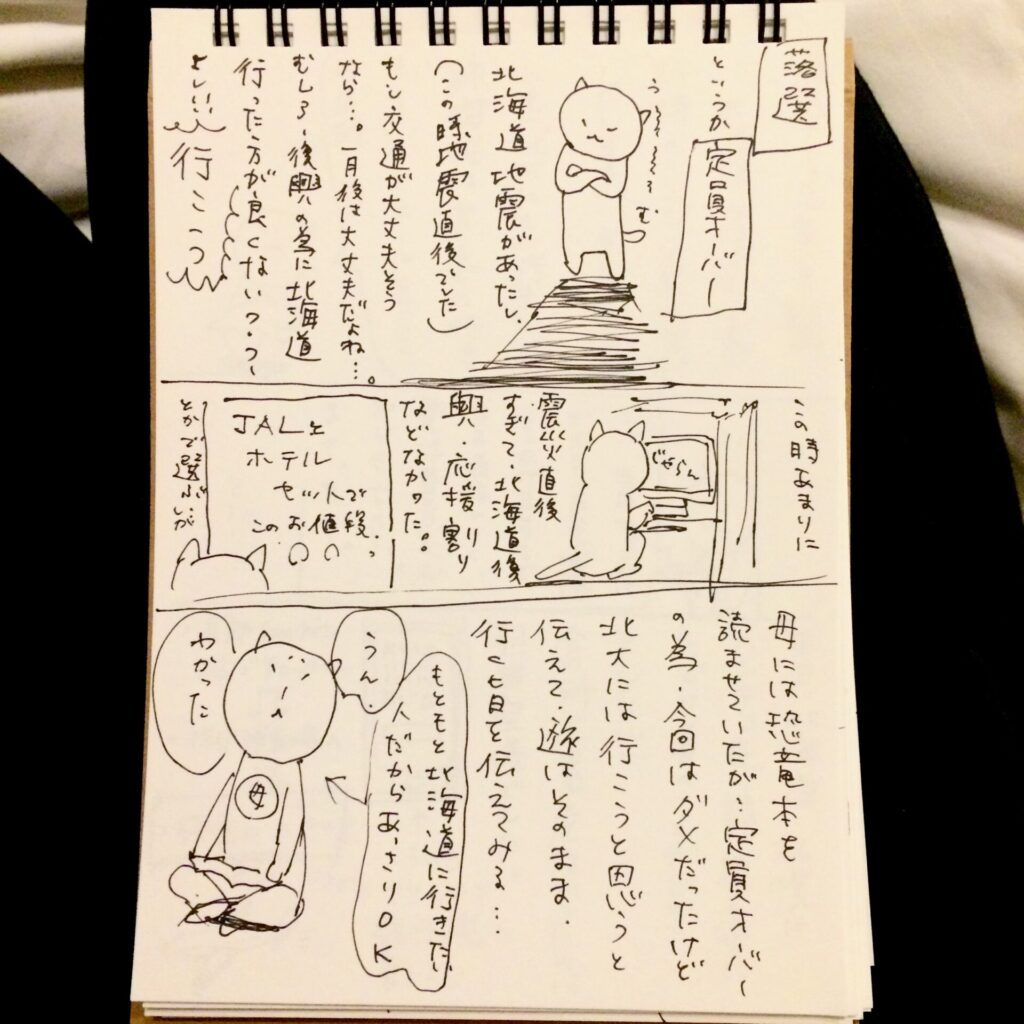 落選
というか
定員オーバー
う~~~~む
北海道地震があったし、
(この時地震直後でした)
もし交通が大丈夫そう
なら…。一月後は大丈夫だよね…。
むしろ、復興の為に北海道
行った方が良くない?
よしい!
行こう
この時あまりに
じゃらん
震災直後
すぎて、北海道復
興・応援割り
などなかった。
JALと
ホテル
セットで
このお値段っ
とかで選ぶしか
母には恐竜本を
読ませていたが…定員オーバー
の為、今回はダメだったけど
北大には行こうと思うと
伝えて、旅はそのまま、
行く旨を伝えてみる…
うん。
もともと北海道に行きたい
人だからあっさりOK
わかった
母